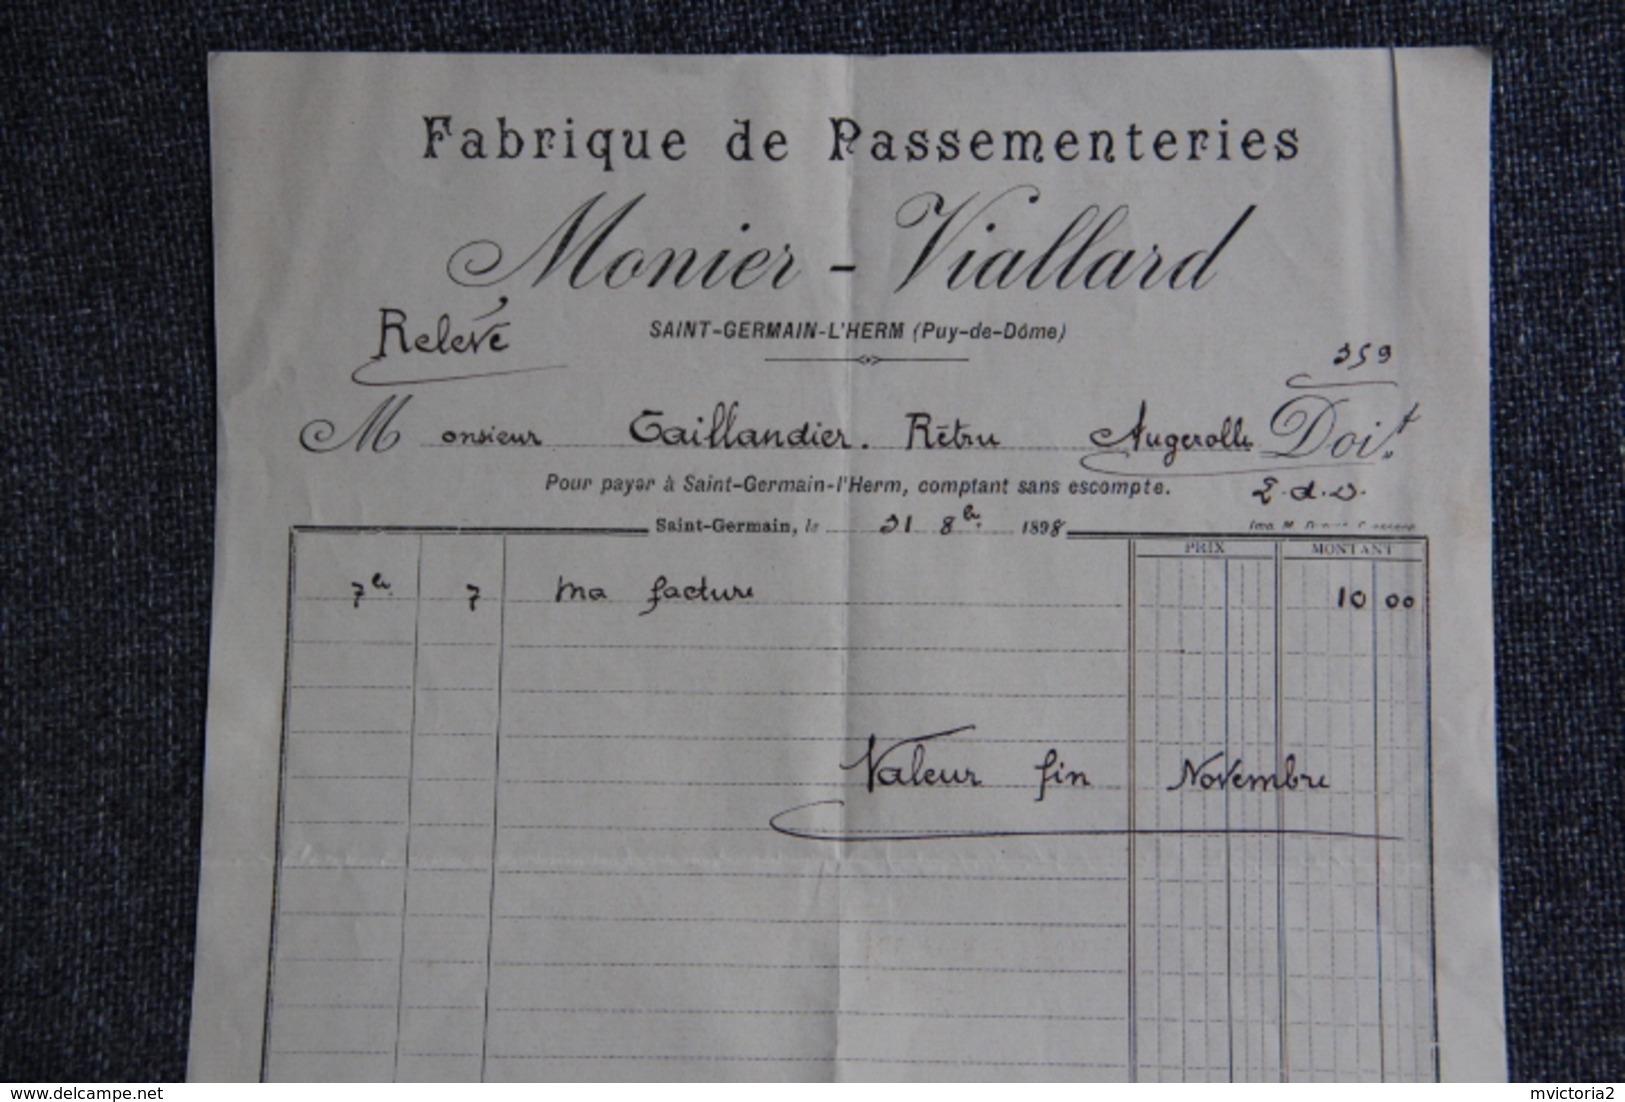 Fabrique de Passementeries
Monier - Viallard
SAINT-GERMAIN-L'HERM (Puy-de-Dôme)
Relevé
359
Monsieur Taillandier. Rétru Augerolle Doit
Pour payer à Saint-Germain-l'Herm, comptant sans escompte.
Saint-Germain, le 31 8bre 1898
Imp. M.
PRIX MONTANT
7bre 7 ma facture 10 00
Valeur fin Novembre
delcampe.net
mvictoria2